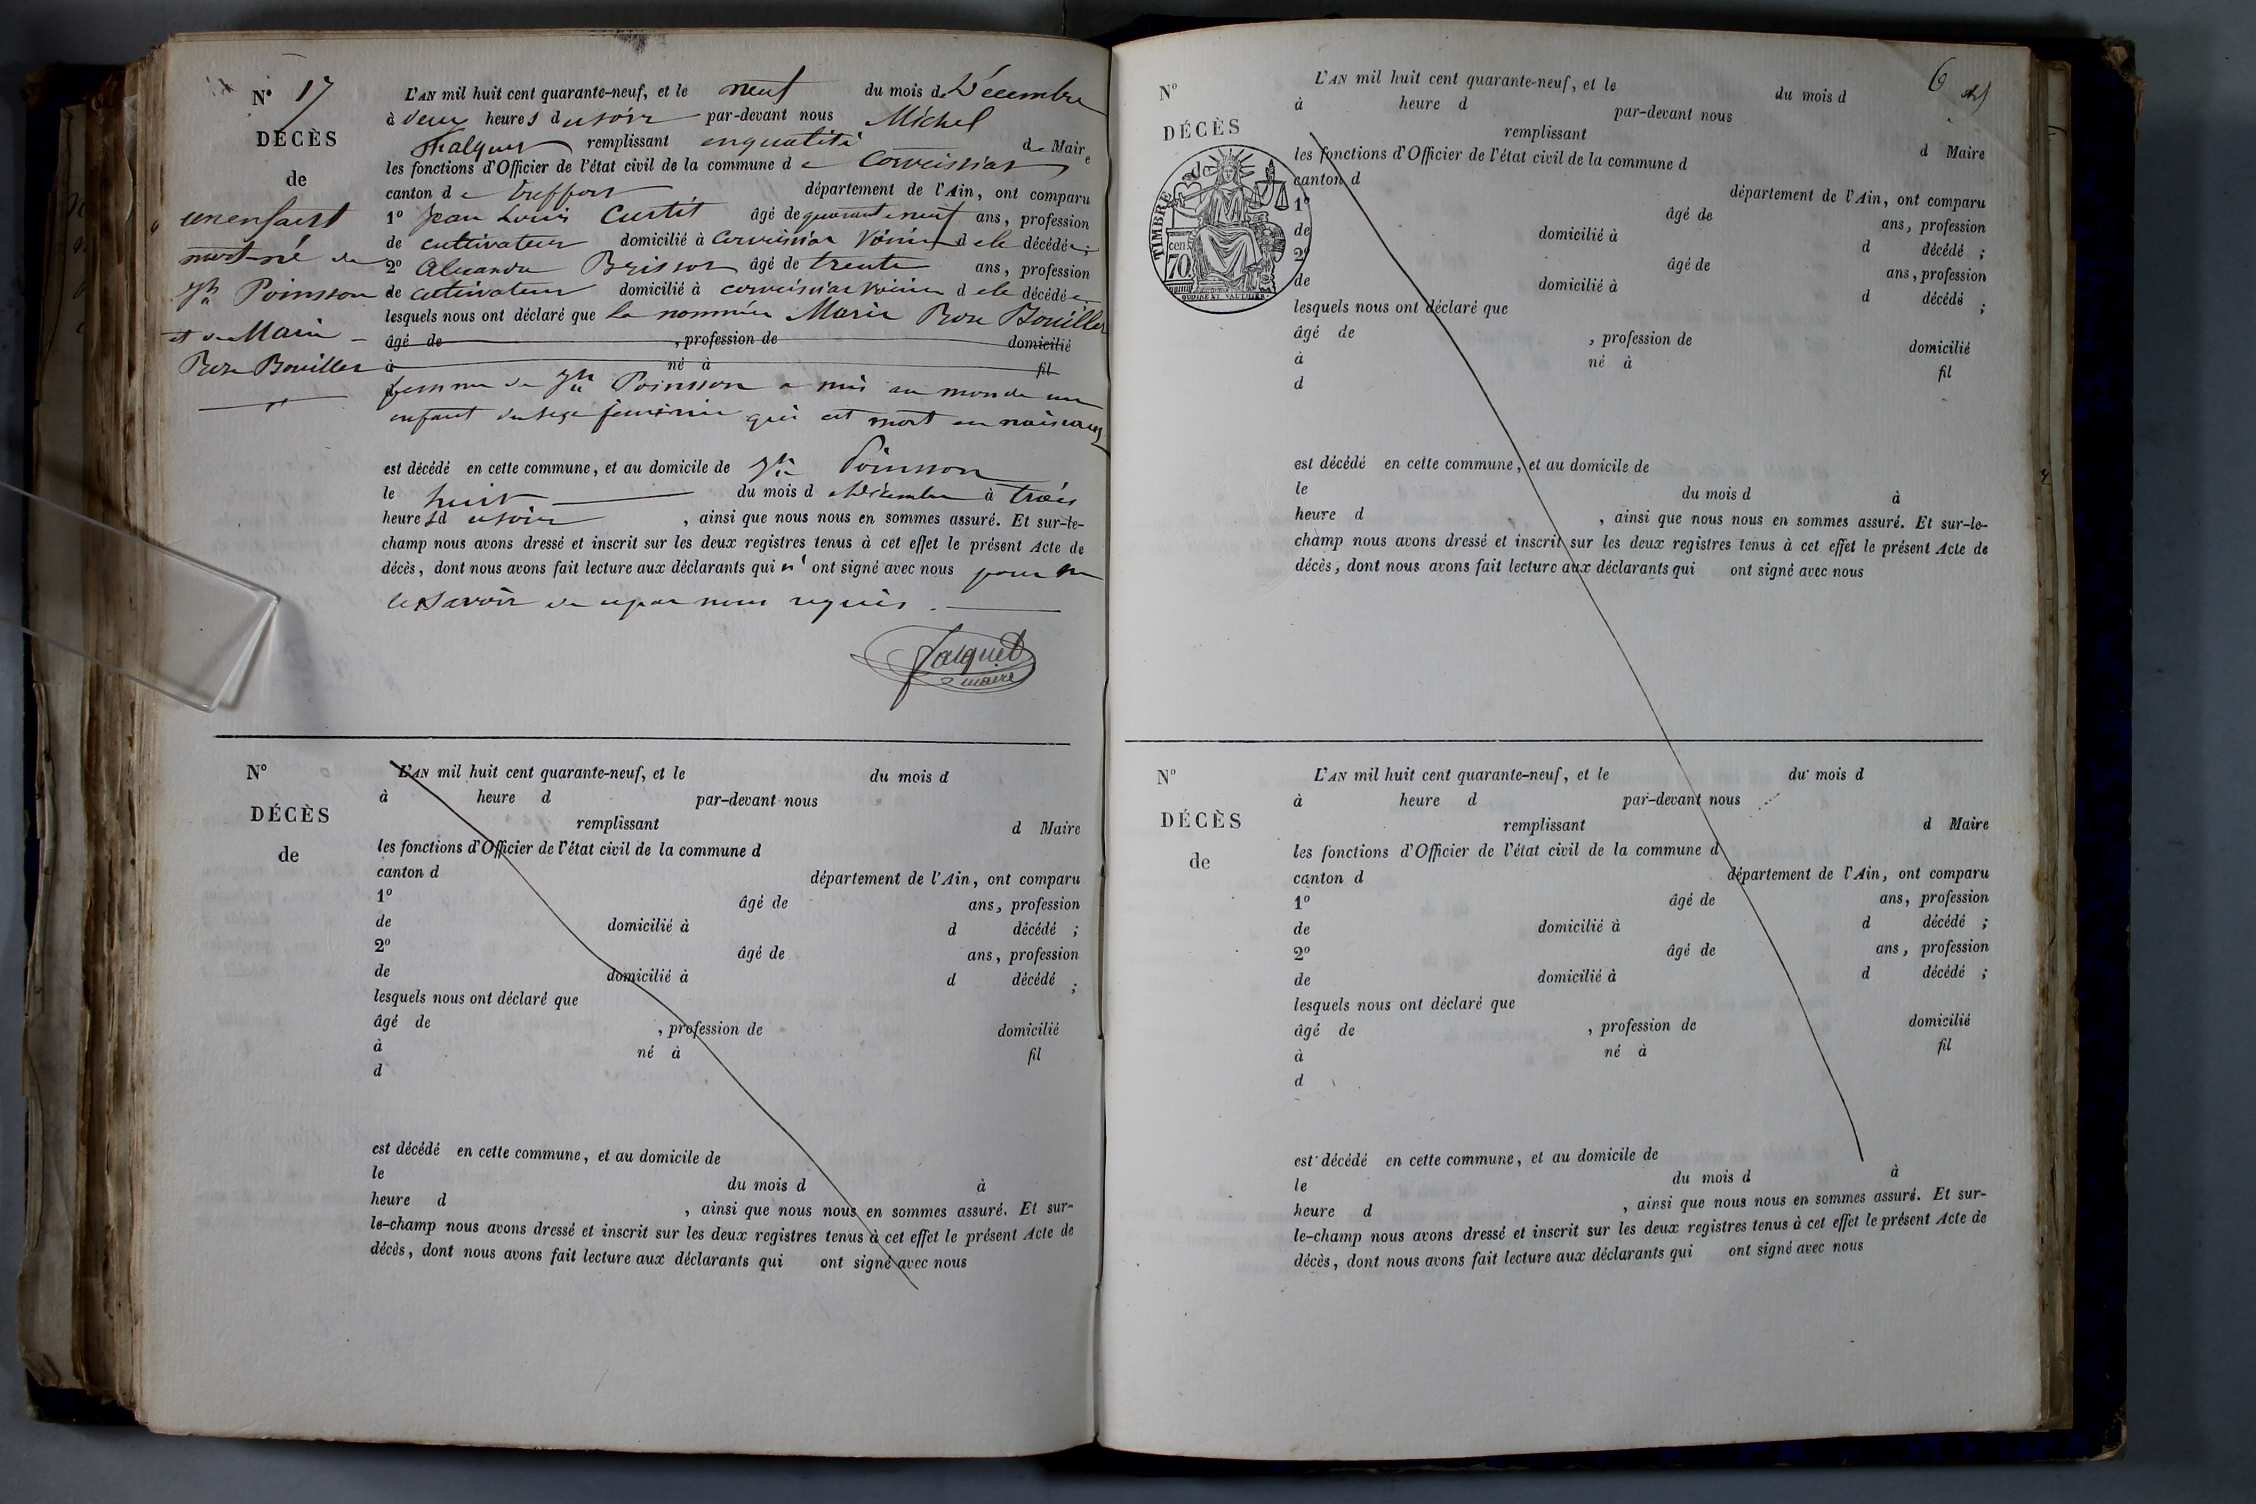 N° 17
DÉCÈS
de
un enfant
mort né de
Jh Poinsson
et de Marie
Rose Bouiller
L'AN mil huit cent quarante-neuf, et le neuf du mois de Décembre
à deux heures du soir par-devant nous Michel
remplissant en qualité de Maire
les fonctions d'Officier de l'état civil de la commune de Corveissiat
canton de Treffort département de l'Ain, ont comparu
1° Jean Louis Curtit âgé de quarante neuf ans, profession
de cultivateur domicilié à Corveissiat voisin d ele décédée ;
2° Alexandre Brissot âgé de trente ans, profession
de cultivateur domicilié à corveissiat voisin d ele décédée
lesquels nous ont déclaré que la nommée Marie Rose Bouiller
âgé de , profession de domicilié
à né à fil
femme de Jh Poinsson a mis au monde un
enfant du sexe feminin qui est mort en naissant
est décédé en cette commune, et au domicile de Jh Poinsson
le huit du mois d décembre à trois
heures du soir , ainsi que nous nous en sommes assuré. Et sur-le-
champ nous avons dressé et inscrit sur les deux registres tenus à cet effet le présent Acte de
décès, dont nous avons fait lecture aux déclarants qui n' ont signé avec nous pour ne
le savoir de ce par nous requis.
Jacquet
maire
N°
DÉCÈS
de
L'AN mil huit cent quarante-neuf, et le du mois d
à heure d par-devant nous
remplissant d Maire
les fonctions d'Officier de l'état civil de la commune d
canton d département de l'Ain, ont comparu
1° âgé de ans, profession
de domicilié à d décédé ;
2° âgé de ans, profession
de domicilié à d décédé ;
lesquels nous ont déclaré que
âgé de , profession de domicilié
à né à fil
d
est décédé en cette commune, et au domicile de
le du mois d à
heure d , ainsi que nous nous en sommes assuré. Et sur-
le-champ nous avons dressé et inscrit sur les deux registres tenus à cet effet le présent Acte de
décès, dont nous avons fait lecture aux déclarants qui ont signé avec nous
6
N°
DÉCÈS
de
TIMBRE
70
cen
OUDINÉ ET VAUTHIER
L'AN mil huit cent quarante-neuf, et le du mois d
à heure d par-devant nous
remplissant d Maire
les fonctions d'Officier de l'état civil de la commune d
canton d département de l'Ain, ont comparu
1° âgé de ans, profession
de domicilié à d décédé ;
2° âgé de ans, profession
de domicilié à d décédé ;
lesquels nous ont déclaré que
âgé de , profession de domicilié
à né à fil
d
est décédé en cette commune, et au domicile de
le du mois d à
heure d , ainsi que nous nous en sommes assuré. Et sur-le-
champ nous avons dressé et inscrit sur les deux registres tenus à cet effet le présent Acte de
décès, dont nous avons fait lecture aux déclarants qui ont signé avec nous
N°
DÉCÈS
de
L'AN mil huit cent quarante-neuf, et le du mois d
à heure d par-devant nous
remplissant d Maire
les fonctions d'Officier de l'état civil de la commune d
canton d département de l'Ain, ont comparu
1° âgé de ans, profession
de domicilié à d décédé ;
2° âgé de ans, profession
de domicilié à d décédé ;
lesquels nous ont déclaré que
âgé de , profession de domicilié
à né à fil
d
est décédé en cette commune, et au domicile de
le du mois d à
heure d , ainsi que nous nous en sommes assuré. Et sur-
le-champ nous avons dressé et inscrit sur les deux registres tenus à cet effet le présent Acte de
décès, dont nous avons fait lecture aux déclarants qui ont signé avec nous